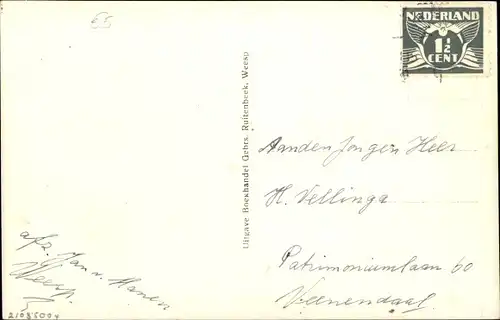 NEDERLAND
1½
CENT
Uitgave Boekhandel Gebrs. Ruitenbeek, Weesp
Aan den Jongen Heer
H. Vellinga
Patrimoniumlaan 60
Veenendaal
afz. Jan v. Manen
Weesp.